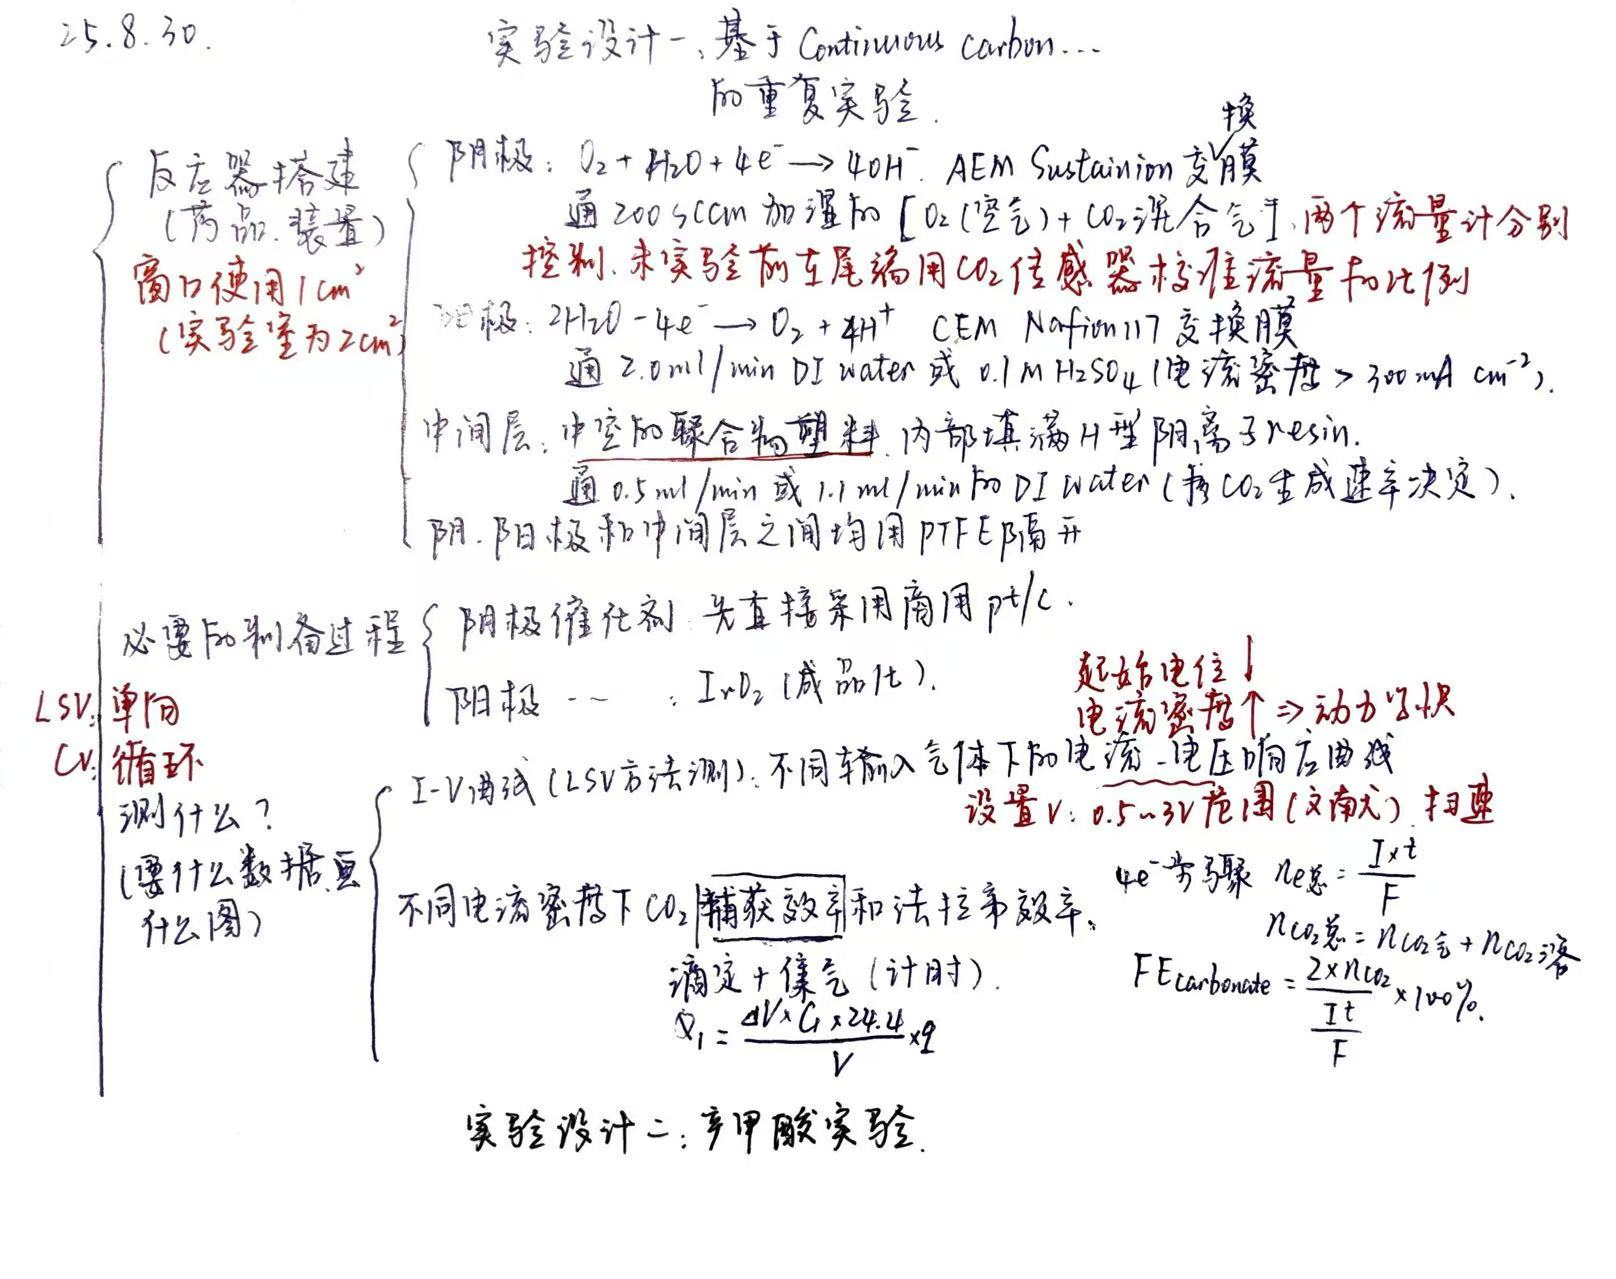 25.8.30.
实验设计一、基于 Continuous carbon...
的重复实验.
反应器搭建
(药品.装置)
窗口使用1cm²
(实验室为2cm²)
阴极: O₂+H₂O+4e⁻→4OH⁻. AEM Sustainion 交换膜
通200sccm加湿的[O₂(空气)+CO₂混合气],两个流量计分别
控制.来实验前在尾端用CO₂传感器校准流量和比例
阳极: 2H₂O-4e⁻→O₂+4H⁺ CEM Nafion117 交换膜
通2.0ml/min DI water 或 0.1M H₂SO₄(电流密度>300mA cm⁻²).
中间层:中空的聚合物塑料,内部填满H型阴离子resin.
通0.5ml/min或1.1ml/min的DI water(按CO₂生成速率决定).
阴.阳极和中间层之间均用PTFE隔开
必要的制备过程
阴极催化剂.先直接采用商用pt/c.
阴极 -- : IrO₂(成品化).
LSV:单向
CV:循环
起始电位↓
电流密度↑⇒动力学快
测什么?
(要什么数据.画
什么图)
I-V曲线(LSV方法测):不同输入气体下的电流-电压响应曲线
设置V:0.5~3V范围(文献).扫速
不同电流密度下CO₂捕获效率和法拉第效率.
滴定+集气(计时).
Q₁=ΔV×C₁×24.4/V×q
4e⁻步骤 ne总=I×t/F
nCO₂总=nCO₂气+nCO₂溶
FEcarbonate=2×nCO₂/(It/F)×100%.
实验设计二:产甲酸实验.